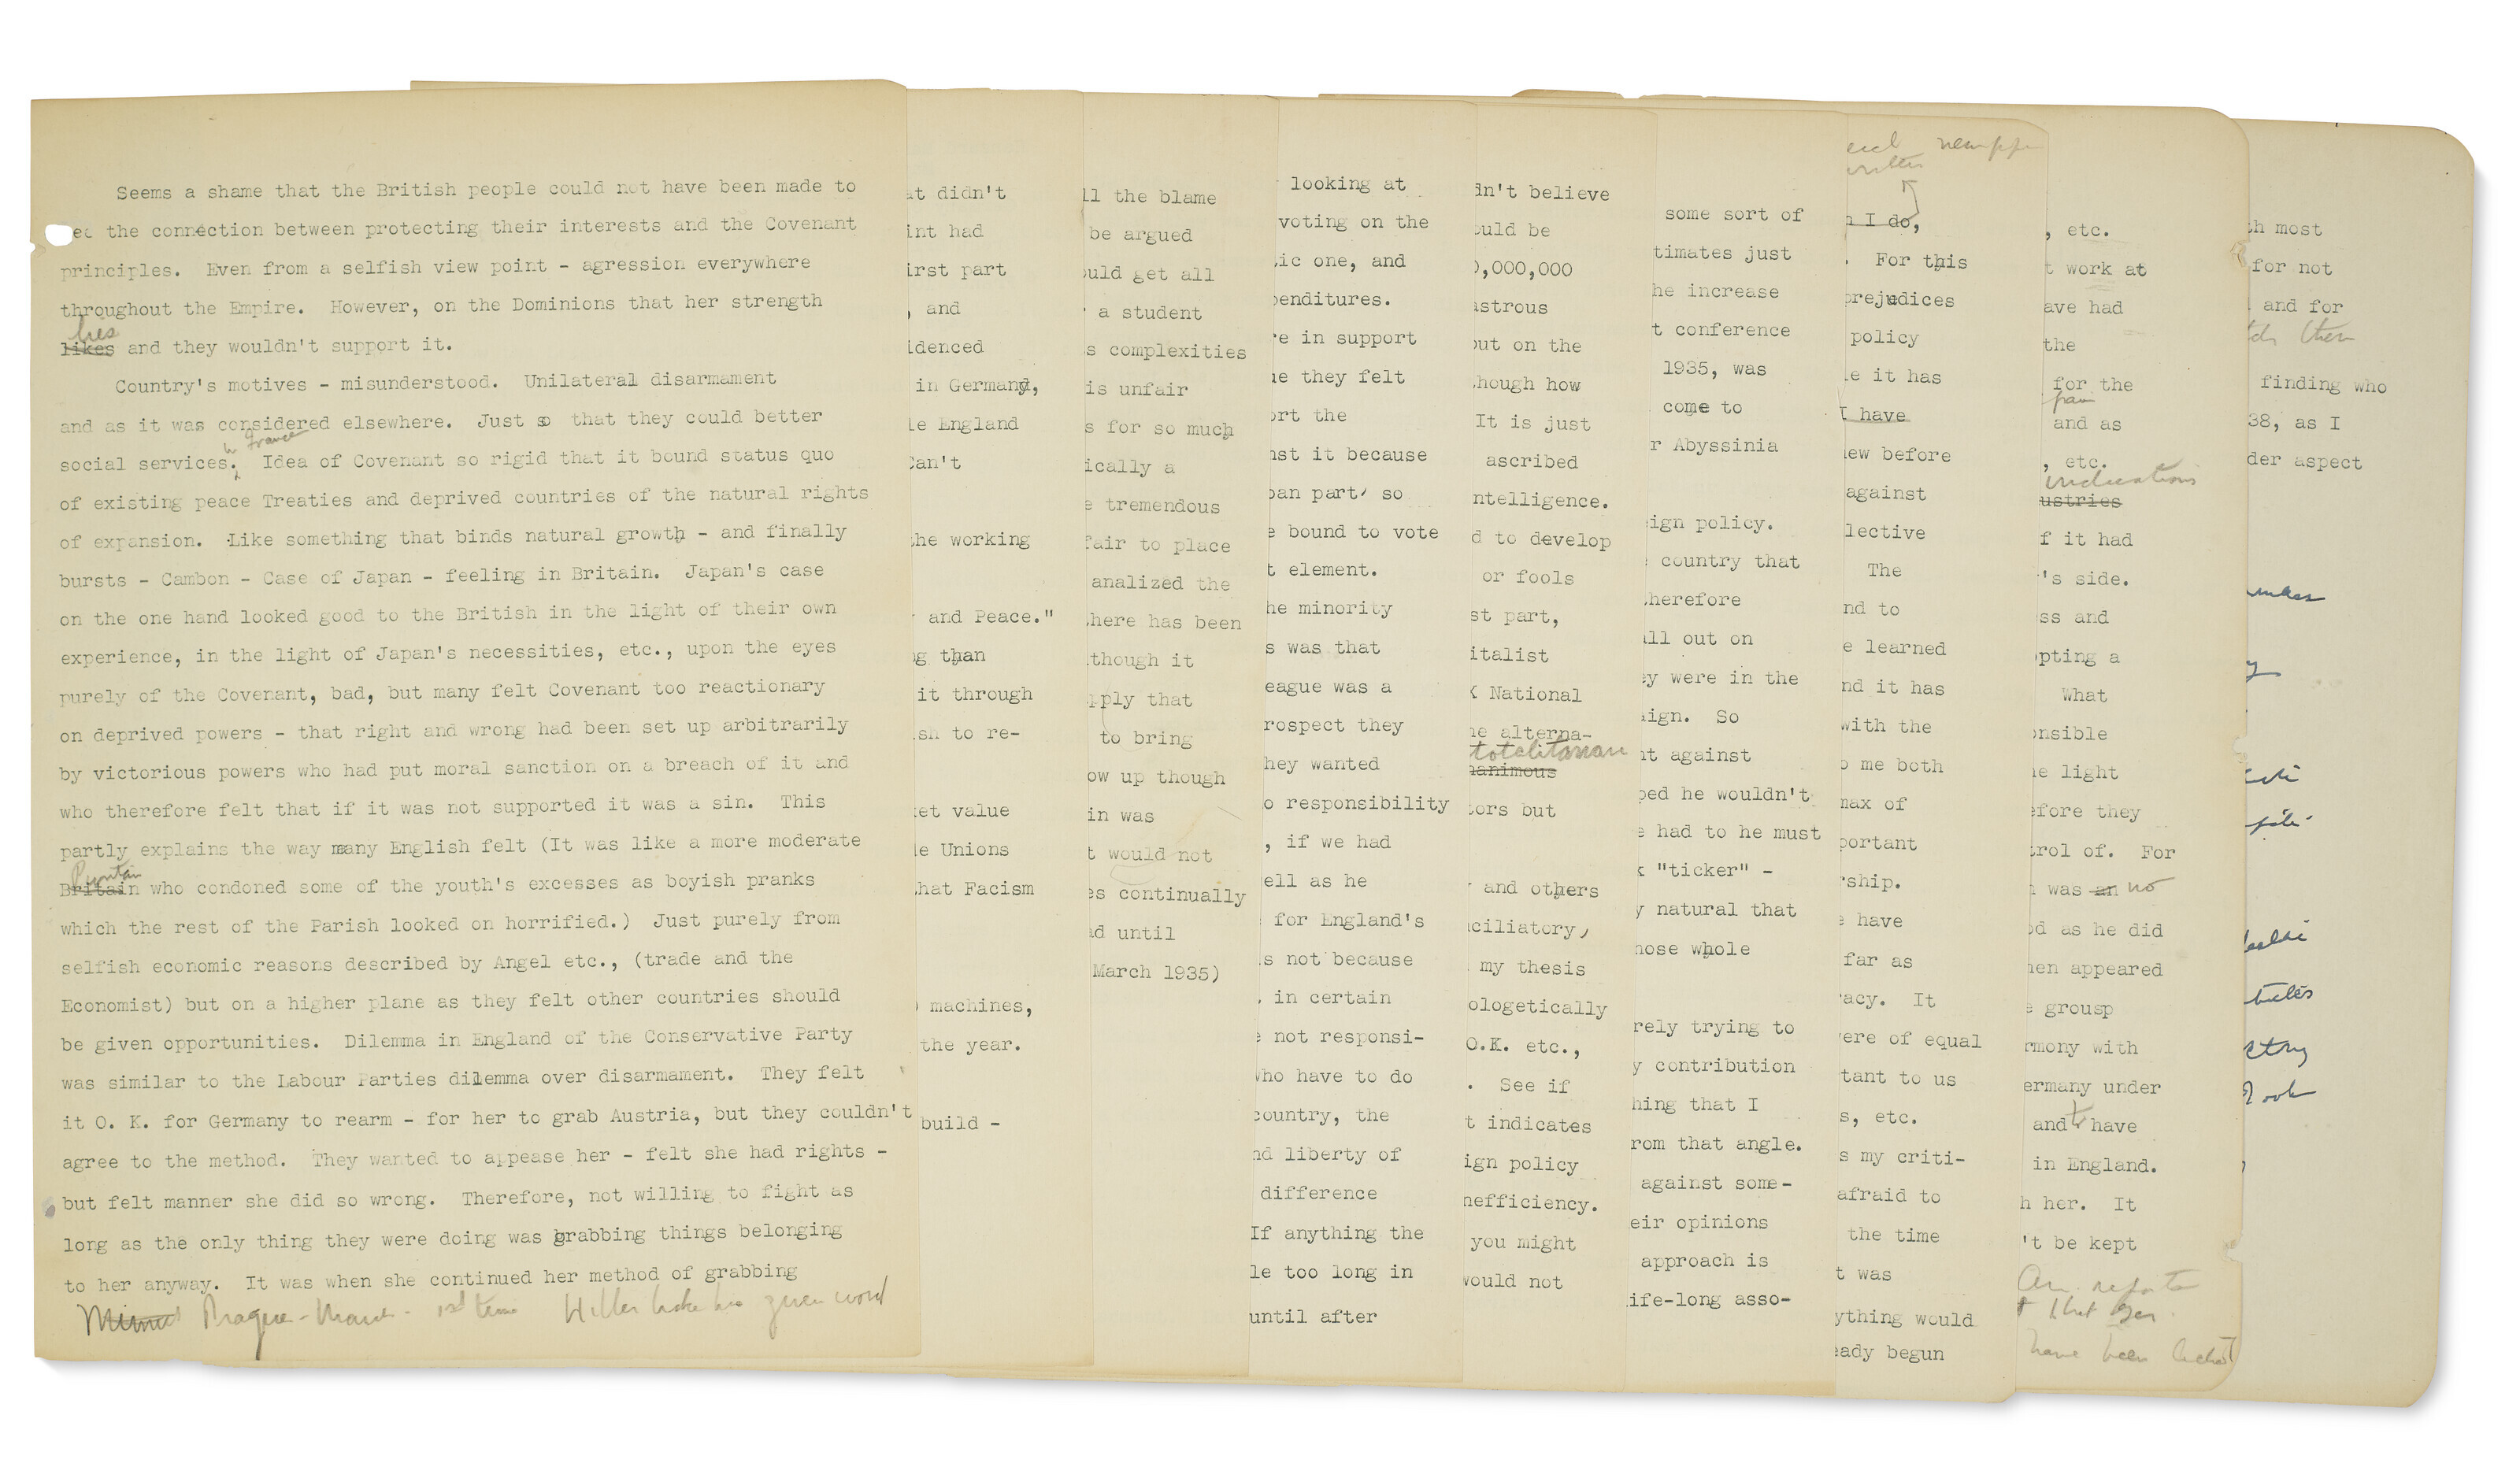 Seems a shame that the British people could not have been made to
the connection between protecting their interests and the Covenant
principles. Even from a selfish view point - agression everywhere
throughout the Empire. However, on the Dominions that her strength
lies
likes and they wouldn't support it.
Country's motives - misunderstood. Unilateral disarmament
and as it was considered elsewhere. Just so that they could better
in France
social services. Idea of Covenant so rigid that it bound status quo
of existing peace Treaties and deprived countries of the natural rights
of expansion. Like something that binds natural growth - and finally
bursts - Cambon - Case of Japan - feeling in Britain. Japan's case
on the one hand looked good to the British in the light of their own
experience, in the light of Japan's necessities, etc., upon the eyes
purely of the Covenant, bad, but many felt Covenant too reactionary
on deprived powers - that right and wrong had been set up arbitrarily
by victorious powers who had put moral sanction on a breach of it and
who therefore felt that if it was not supported it was a sin. This
partly explains the way many English felt (It was like a more moderate
Puritan
Britain who condoned some of the youth's excesses as boyish pranks
which the rest of the Parish looked on horrified.) Just purely from
selfish economic reasons described by Angel etc., (trade and the
Economist) but on a higher plane as they felt other countries should
be given opportunities. Dilemma in England of the Conservative Party
was similar to the Labour Parties dilemma over disarmament. They felt
it O. K. for Germany to rearm - for her to grab Austria, but they couldn't
agree to the method. They wanted to appease her - felt she had rights -
but felt manner she did so wrong. Therefore, not willing to fight as
long as the only thing they were doing was grabbing things belonging
to her anyway. It was when she continued her method of grabbing
Prague - March - 1st time Hitler broke his given word
at didn't
int had
irst part
, and
idenced
in Germany,
le England
Can't
the working
and Peace."
ng than
it through
sh to re-
ket value
le Unions
that Facism
machines,
the year.
build -
ll the blame
be argued
ould get all
a student
s complexities
is unfair
s for so much
ically a
e tremendous
fair to place
analized the
there has been
though it
pply that
to bring
ow up though
in was
t would not
es continually
ad until
March 1935)
looking at
voting on the
ic one, and
penditures.
re in support
ue they felt
ort the
nst it because
ban part so
e bound to vote
t element.
he minority
s was that
eague was a
rospect they
hey wanted
o responsibility
, if we had
ell as he
for England's
s not because
, in certain
e not responsi-
who have to do
country, the
nd liberty of
difference
If anything the
le too long in
until after
dn't believe
ould be
0,000,000
astrous
out on the
though how
It is just
ascribed
ntelligence.
d to develop
or fools
st part,
italist
K National
he alterna-
totalitarian
nanimous
tors but
and others
nciliatory,
my thesis
ologetically
O.K. etc.,
. See if
t indicates
ign policy
nefficiency.
you might
would not
some sort of
timates just
he increase
t conference
1935, was
come to
r Abyssinia
ign policy.
country that
therefore
all out on
ey were in the
aign. So
nt against
ped he wouldn't
e had to he must
k "ticker" -
y natural that
hose whole
rely trying to
y contribution
hing that I
rom that angle.
against some-
eir opinions
approach is
ife-long asso-
h I do,
. For this
prejudices
policy
le it has
I have
iew before
against
lective
The
nd to
e learned
nd it has
with the
o me both
max of
portant
rship.
e have
far as
racy. It
were of equal
tant to us
s, etc.
s my criti-
afraid to
the time
t was
ything would
eady begun
, etc.
t work at
ave had
the
for the
and as
, etc.
indications
ustries
f it had
's side.
ss and
pting a
What
onsible
he light
efore they
trol of. For
was an no
od as he did
hen appeared
e grousp
rmony with
ermany under
and have
in England.
h her. It
't be kept
have been
th most
for not
and for
them
finding who
38, as I
der aspect